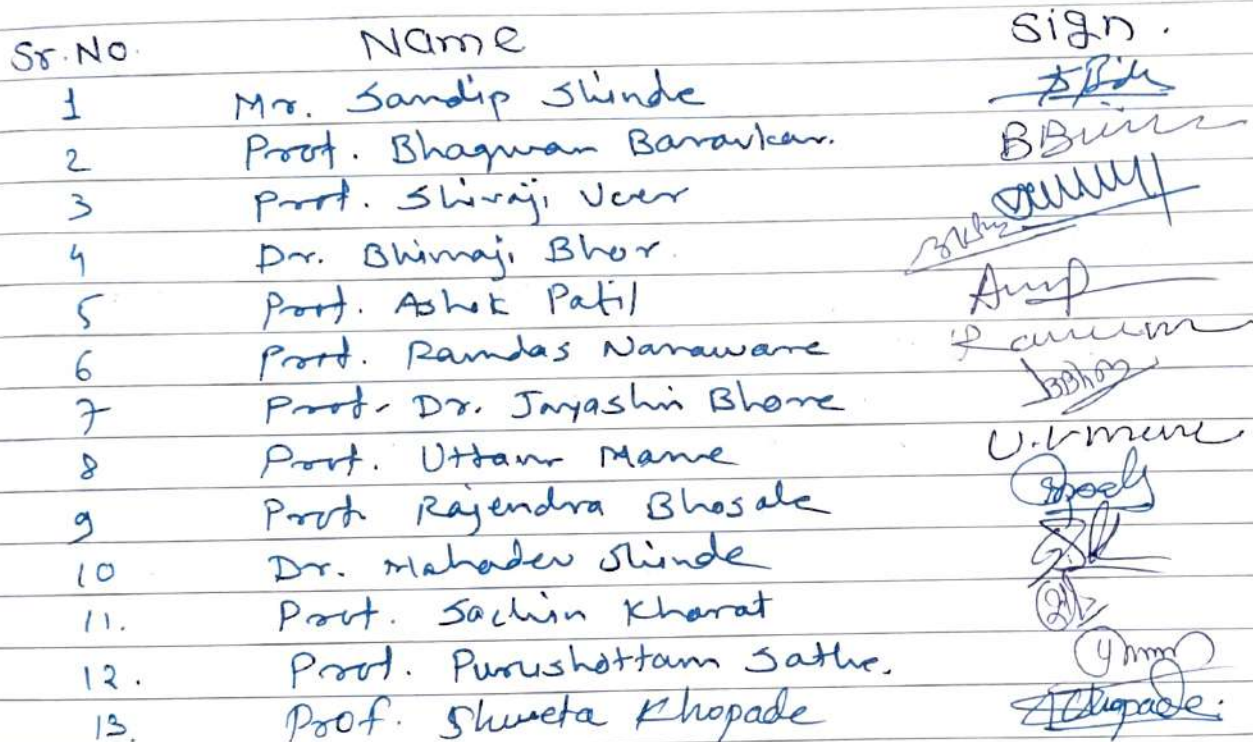 Sr.No. Name Sign.
1 Mr. Sandip Shinde
2 Prof. Bhagwan Baravkar.
3 Prof. Shivaji Veer
4 Dr. Bhimaji Bhor.
5 Prof. Ashok Patil
6 Prof. Ramdas Narawane
7 Prof. Dr. Jayashri Bhore
8 Prof. Uttam Mane U.V.mane
9 Prof. Rajendra Bhosale
10 Dr. Mahadev Shinde
11. Prof. Sachin Kharat
12. Prof. Purushottam Sathe.
13. Prof. Shweta Khopade